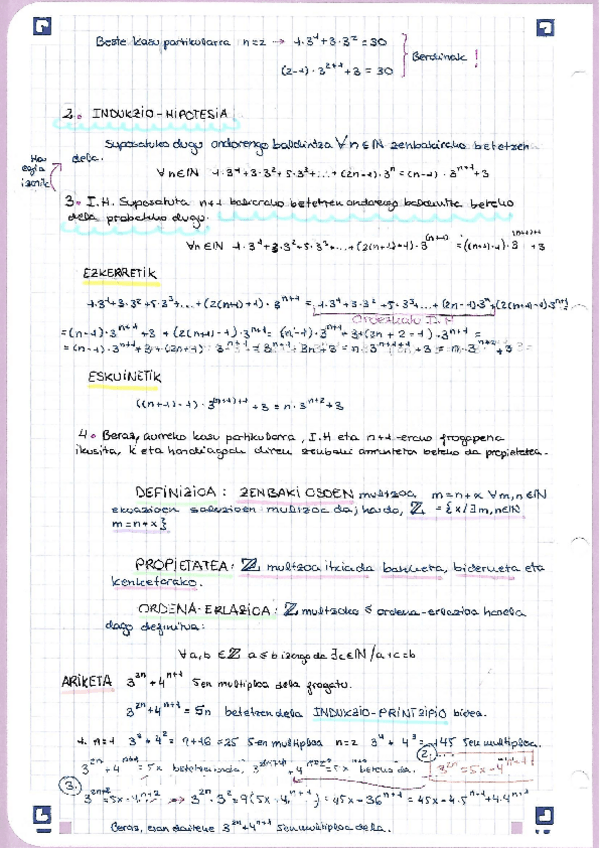 Beste kasu partikularra n=2 → 1·3¹+3·3²=30
(2-1)·3²⁺¹+3=30 Berdinak!
2. INDUKZIO-HIPOTESIA
Suposatuko dugu ondorengo baldintza ∀n∈ℕ zenbakirako betetzen
dela.
∀n∈ℕ 1·3¹+3·3²+5·3³+...+(2n-1)·3ⁿ=(n-1)·3ⁿ⁺¹+3
Hau egia izanik
3. I.H. Suposatuta n+1 baliorako betetzen ondorengo baldintza beteko
dela frobatuko dugu.
∀n∈ℕ 1·3¹+3·3²+5·3³+...+(2(n+1)-1)·3⁽ⁿ⁺¹⁾=((n+1)-1)·3⁽ⁿ⁺¹⁾⁺¹+3
EZKERRETIK
1·3¹+3·3²+5·3³+...+(2(n+1)-1)·3ⁿ⁺¹=1·3¹+3·3²+5·3³+...+(2n-1)·3ⁿ+(2(n+1)-1)·3ⁿ⁺¹
Ordezkatu I.H
=(n-1)·3ⁿ⁺¹+3+(2(n+1)-1)·3ⁿ⁺¹=(n-1)·3ⁿ⁺¹+3+(2n+2-1)·3ⁿ⁺¹=
=(n-1)·3ⁿ⁺¹+3+(2n+1)·3ⁿ⁺¹
ESKUINETIK
((n+1)-1)·3⁽ⁿ⁺¹⁾⁺¹+3=n·3ⁿ⁺²+3
4. Beraz, aurreko kasu partikularra, I.H eta n+1-erako frogapena
ikusita, k eta handiagoak diren zenbaki arruntetan beteko da propietatea.
DEFINIZIOA: ZENBAKI OSOEN multzoa, m=n+x ∀m,n∈ℕ
ekuazioen soluzioen multzoa da; hau da, ℤ={x/∃m,n∈ℕ
m=n+x}
PROPIETATEA: ℤ multzoa itxia da batuketa, biderketa eta
kenketarako.
ORDENA-ERLAZIOA: ℤ multzoko ≤ ordena-erlazioa honela
dago definitua:
∀a,b∈ℤ a≤b izango da ∃c∈ℕ/a+c=b
ARIKETA 3²ⁿ+4ⁿ⁺¹ 5en multiploa dela frogatu.
3²ⁿ+4ⁿ⁺¹=5n betetzen dela INDUKZIO-PRINTZIPIO bidez.
1. n=1 3²+4²=9+16=25 5-en multiploa n=2 3⁴+4³=145 5en multiploa.
2. 3²ⁿ+4ⁿ⁺¹=5x betetzen bada, 3²⁽ⁿ⁺¹⁾+4ⁿ⁺²=5x beteko da. 3²ⁿ=5x-4ⁿ⁺¹
3. 3²ⁿ⁺²=5x-4ⁿ⁺² → 3²ⁿ·3²=9(5x-4ⁿ⁺¹)=45x-36ⁿ⁺¹=45x-4·5ⁿ⁺¹+4·4ⁿ⁺¹
Beraz, esan daiteke 3²ⁿ+4ⁿ⁺¹ 5en multiploa dela.